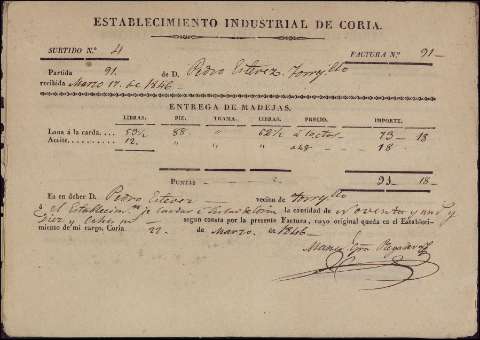 ESTABLECIMIENTO INDUSTRIAL DE CORIA.
SURTIDO N.º 4 FACTURA N.º 91
Partida 91. de D. Pedro Estevez
recibida Marzo 17. de 1846
ENTREGA DE MADEJAS.
LIBRAS. PIE. TRAMA. LIBRAS. PRECIO. IMPORTE.
Lana á la carda.... 88 " 73 18
Aceite............ 12. " " 18
PUNTAS 93 18
Es en deber D. Pedro Estevez vecino de
á el Establecim.to la cantidad de Noventa y
diez y ocho según consta por la presente Factura, cuyo original queda en el Establecimiento
miento de mi cargo. Coria 22 de Marzo de 1846